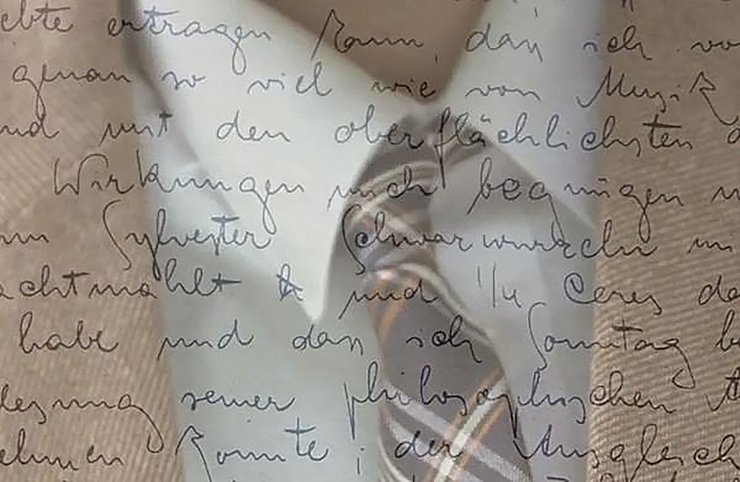 ebte ertragen kann, daß ich vo
genau so viel wie von Musik
nd mit den oberflächlichsten
Wirkungen mich begnügen m
nn Sylvester Schwarzwurzeln
achtmahlt & und 1/4 Ceres da
habe und daß ich Sonntag b
lesung seiner philosophischen A
ehmen konnte; der Ausgleich